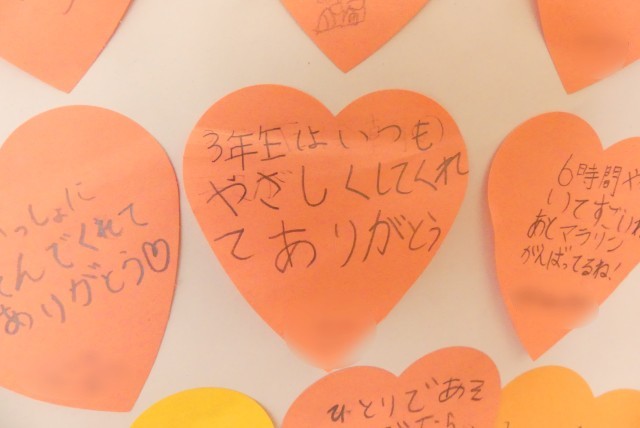 3年生はいつも
やさしくしてくれ
てありがとう
っしょに
んでくれて
ありがとう♡
6時間や
いてすごいね
あとマラソン
がんばってるね!
ひとりであそ